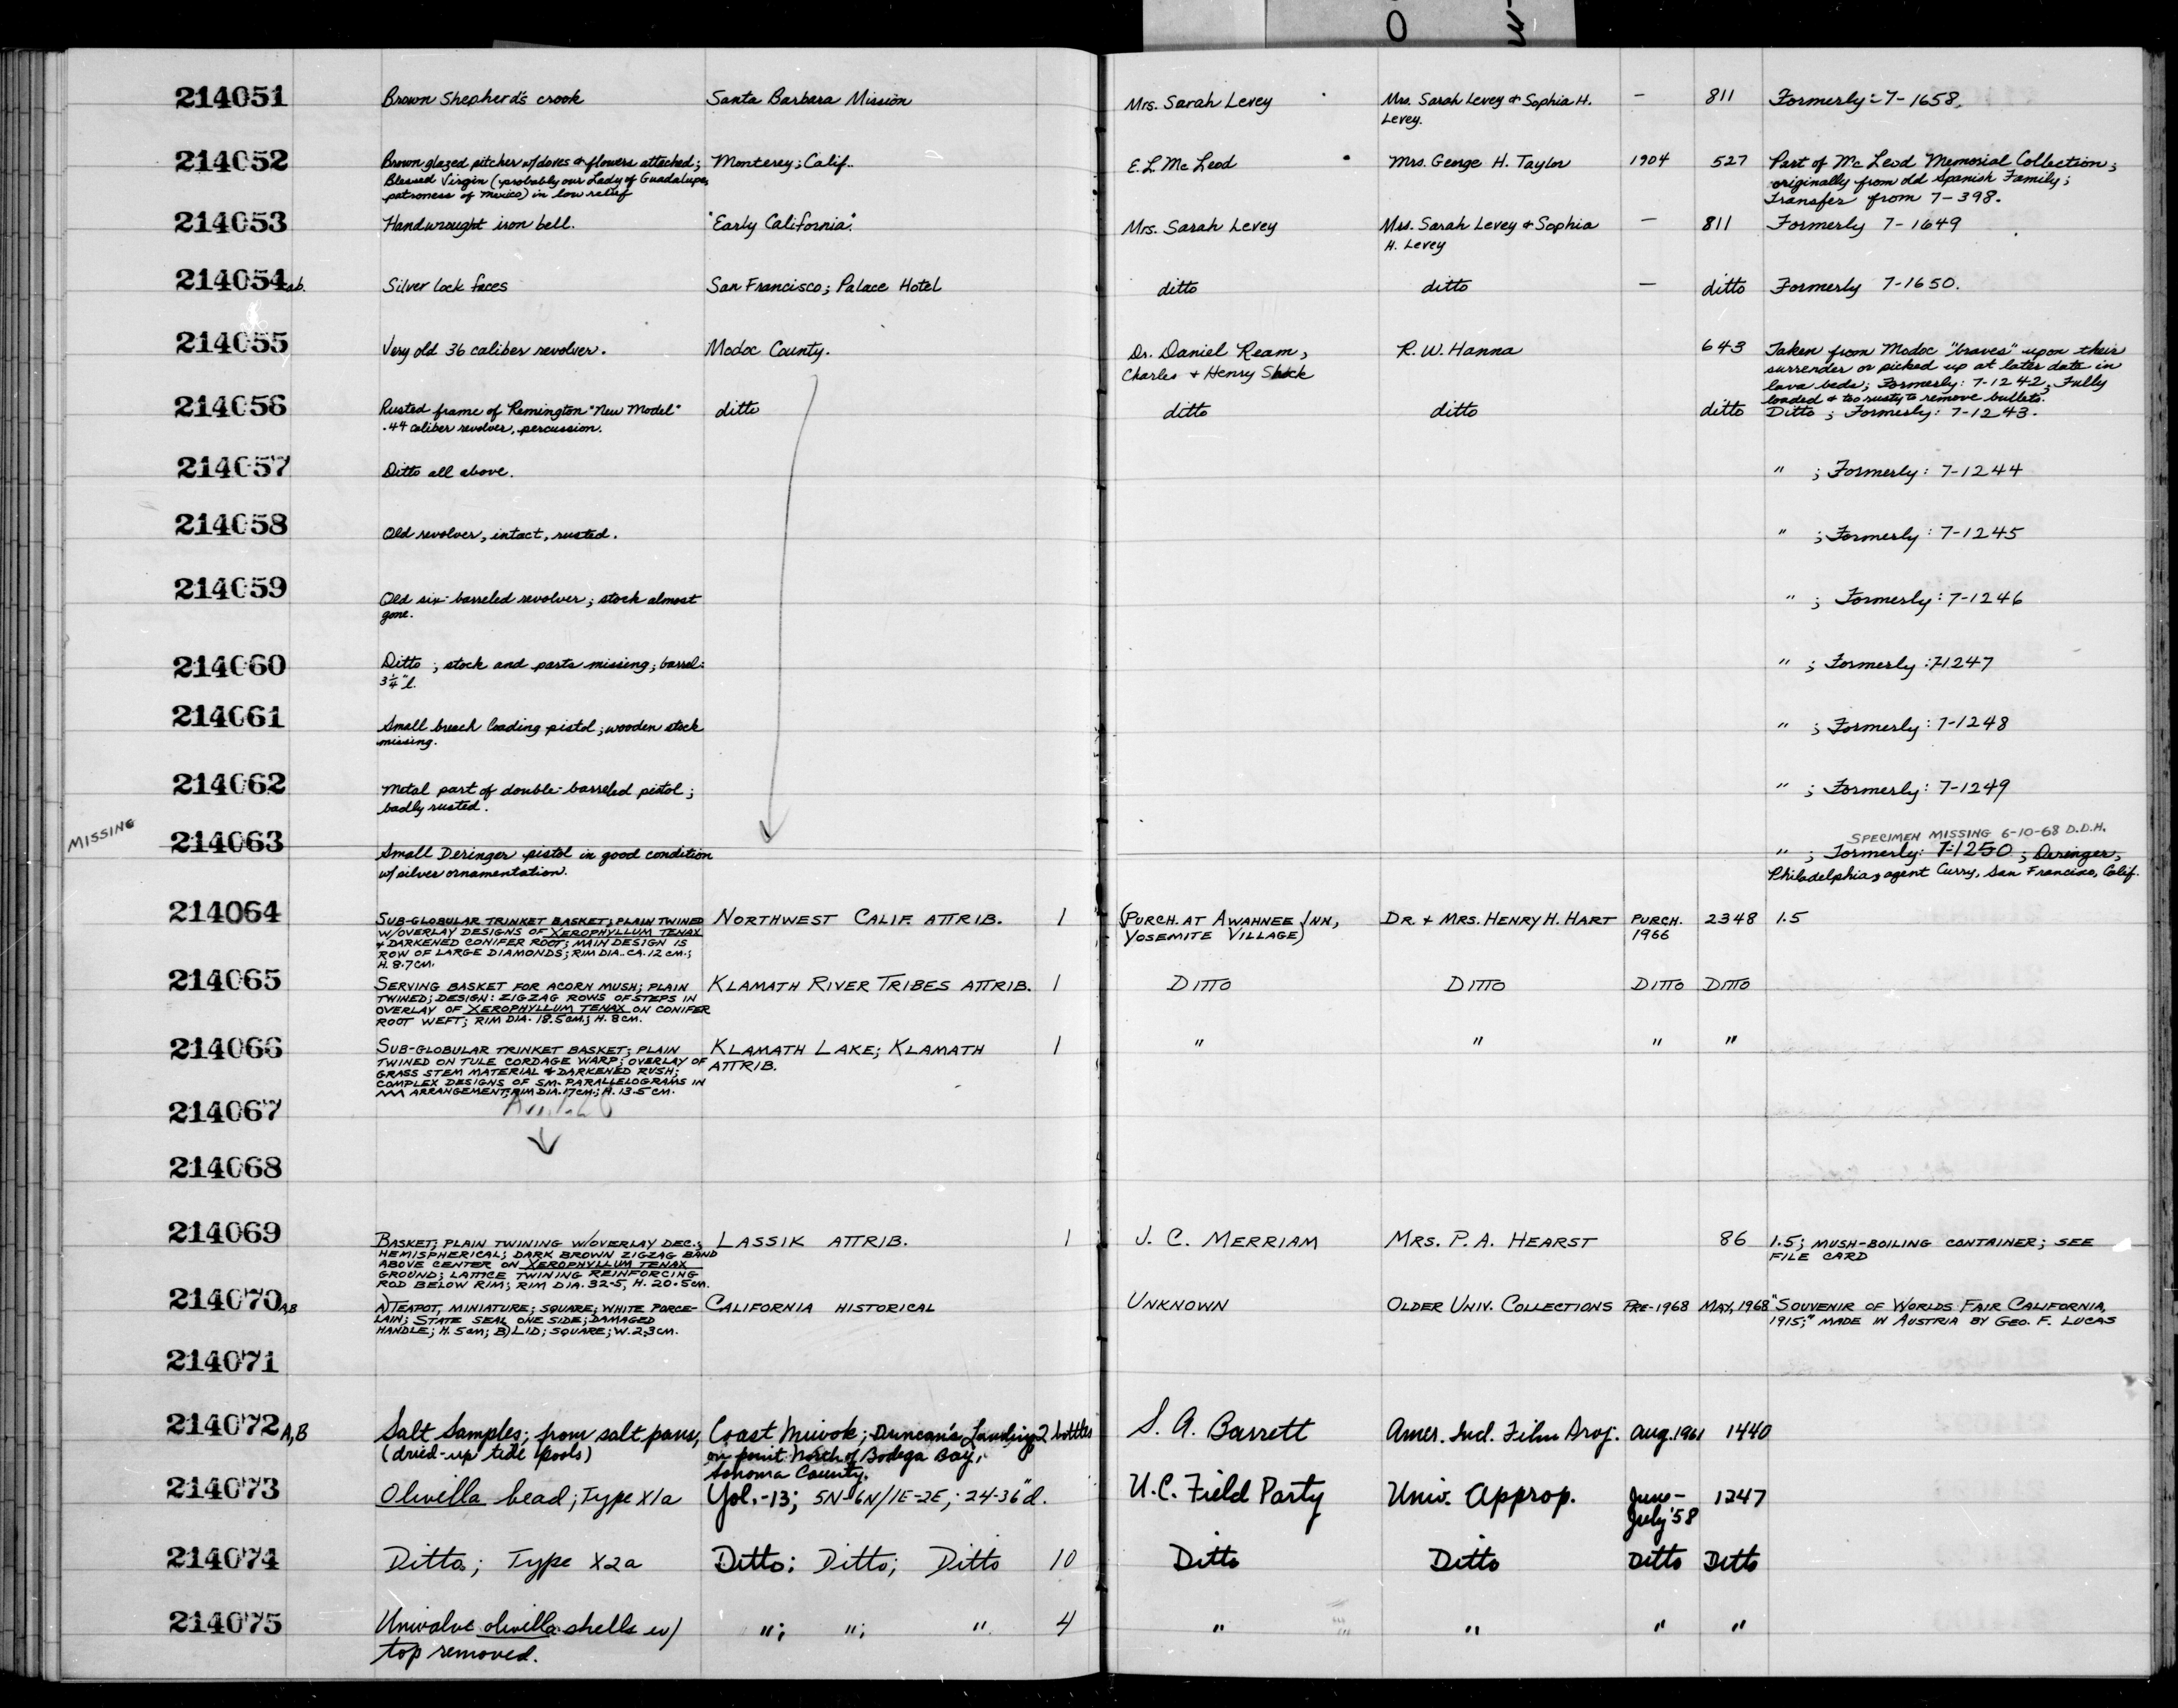 214051 Brown Shepherd's crook Santa Barbara Mission Mrs. Sarah Levey Mrs. Sarah Levey & Sophia H. — 811 Formerly: 7-1658.
Levey.
214052 Brown glazed pitcher w/doves & flowers attached; Monterey; Calif. E. L. McLeod Mrs. George H. Taylor 1904 527 Part of McLeod Memorial Collection;
Blessed Virgin (probably our Lady of Guadalupe, originally from old Spanish Family;
patroness of Mexico) in low relief Transfer from 7-398.
214053 Handwrought iron bell. "Early California". Mrs. Sarah Levey Mrs. Sarah Levey & Sophia — 811 Formerly 7-1649
H. Levey
214054 ab. Silver lock faces San Francisco; Palace Hotel ditto ditto — ditto Formerly 7-1650.
214055 Very old 36 caliber revolver. Modoc County. Dr. Daniel Ream, R. W. Hanna 643 Taken from Modoc "braves" upon their
Charles & Henry surrender or picked up at later date in
lava beds; Formerly: 7-1242; Fully
loaded & too rusty to remove bullets.
214056 Rusted frame of Remington "New Model" ditto ditto ditto ditto Ditto; Formerly: 7-1243.
.44 caliber revolver, percussion.
214057 Ditto all above. " ; Formerly: 7-1244
214058 Old revolver, intact, rusted. " ; Formerly: 7-1245
214059 Old six-barreled revolver; stock almost " ; Formerly: 7-1246
gone.
214060 Ditto ; stock and parts missing; barrel: " ; Formerly: 7-1247
3¼" l.
214061 Small breech loading pistol; wooden stock " ; Formerly: 7-1248
missing.
214062 Metal part of double-barreled pistol; " ; Formerly: 7-1249
badly rusted.
SPECIMEN MISSING 6-10-68 D.D.H.
MISSING 214063 Small Deringer pistol in good condition " ; Formerly: 7-1250; Deringer,
w/silver ornamentation. Philadelphia; agent Curry, San Francisco, Calif.
214064 SUB-GLOBULAR TRINKET BASKET; PLAIN TWINED NORTHWEST CALIF. ATTRIB. 1 (PURCH. AT AWAHNEE INN, DR. & MRS. HENRY H. HART PURCH. 2348 1.5
W/OVERLAY DESIGNS OF XEROPHYLLUM TENAX YOSEMITE VILLAGE) 1966
& DARKENED CONIFER ROOT; MAIN DESIGN IS
ROW OF LARGE DIAMONDS; RIM DIA. CA. 12 CM.;
H. 8.7 CM.
214065 SERVING BASKET FOR ACORN MUSH; PLAIN KLAMATH RIVER TRIBES ATTRIB. 1 DITTO DITTO DITTO DITTO
TWINED; DESIGN: ZIGZAG ROWS OF STEPS IN
OVERLAY OF XEROPHYLLUM TENAX ON CONIFER
ROOT WEFT; RIM DIA. 18.5 CM.; H. 8 CM.
214066 SUB-GLOBULAR TRINKET BASKET; PLAIN KLAMATH LAKE; KLAMATH 1 " " " "
TWINED ON TULE CORDAGE WARP; OVERLAY OF ATTRIB.
GRASS STEM MATERIAL & DARKENED RUSH;
COMPLEX DESIGNS OF SM. PARALLELOGRAMS IN
ARRANGEMENT; RIM DIA. 17 CM.; H. 13.5 CM.
214067
214068
214069 BASKET; PLAIN TWINING W/OVERLAY DEC.; LASSIK ATTRIB. 1 J. C. MERRIAM MRS. P. A. HEARST 86 1.5; MUSH-BOILING CONTAINER; SEE
HEMISPHERICAL; DARK BROWN ZIGZAG BAND FILE CARD
ABOVE CENTER ON XEROPHYLLUM TENAX
GROUND; LATTICE TWINING REINFORCING
ROD BELOW RIM; RIM DIA. 32.5, H. 20.5 CM.
214070 A,B A) TEAPOT, MINIATURE; SQUARE; WHITE PORCE- CALIFORNIA HISTORICAL UNKNOWN OLDER UNIV. COLLECTIONS PRE-1968 MAY, 1968 "SOUVENIR OF WORLDS FAIR CALIFORNIA,
LAIN; STATE SEAL ONE SIDE; DAMAGED 1915;" MADE IN AUSTRIA BY GEO. F. LUCAS
HANDLE; H. 5 CM; B) LID; SQUARE; W. 2.3 CM.
214071
214072 A,B Salt Samples; from salt pans, Coast Miwok; Duncan's Landing 2 bottles S. A. Barrett Amer. Ind. Film Proj. Aug. 1961 1440
(dried-up tide pools) on point North of Bodega Bay,
Sonoma County.
214073 Olivella bead; Type X1a Yol.-13; 5N-6N/1E-2E; 24-36" d. U.C. Field Party Univ. Approp. June- 1247
July '58
214074 Ditto; Type X2a Ditto; Ditto; Ditto 10 Ditto Ditto Ditto Ditto
214075 Univalve olivella shells w/ "; "; " 4 " " " "
top removed.